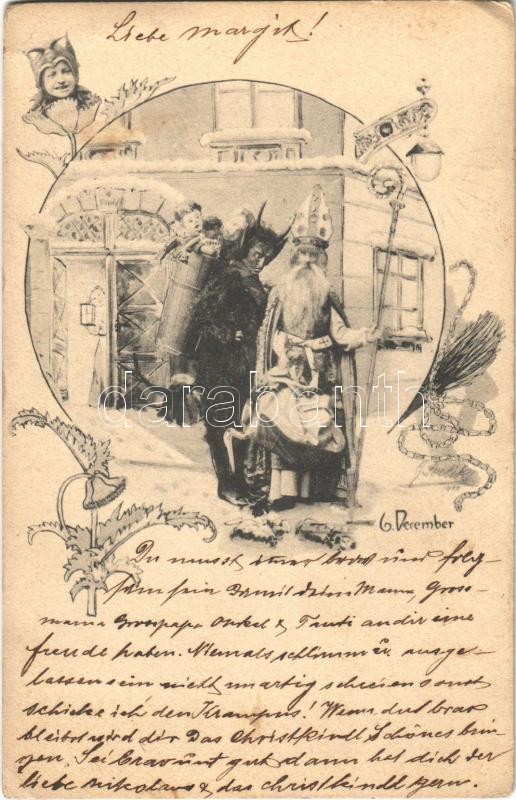 Liebe Margit!
darabanth.com
6. December
Du musst immer brav und folg-
sam sein Damit deine Mama, Gross-
mama Grosspapa Onkel & Tanti an dir eine
freude haben. Niemals schlimm u. ausge-
lassen sein nicht unartig schreien sonst
schicke ich den Krampus! Wenn du brav
bleibst wird dir Das Christkindl Schönes brin-
gen. Sei brav und gut dann hat dich der
liebe Nikolaus & das christkindl gern.